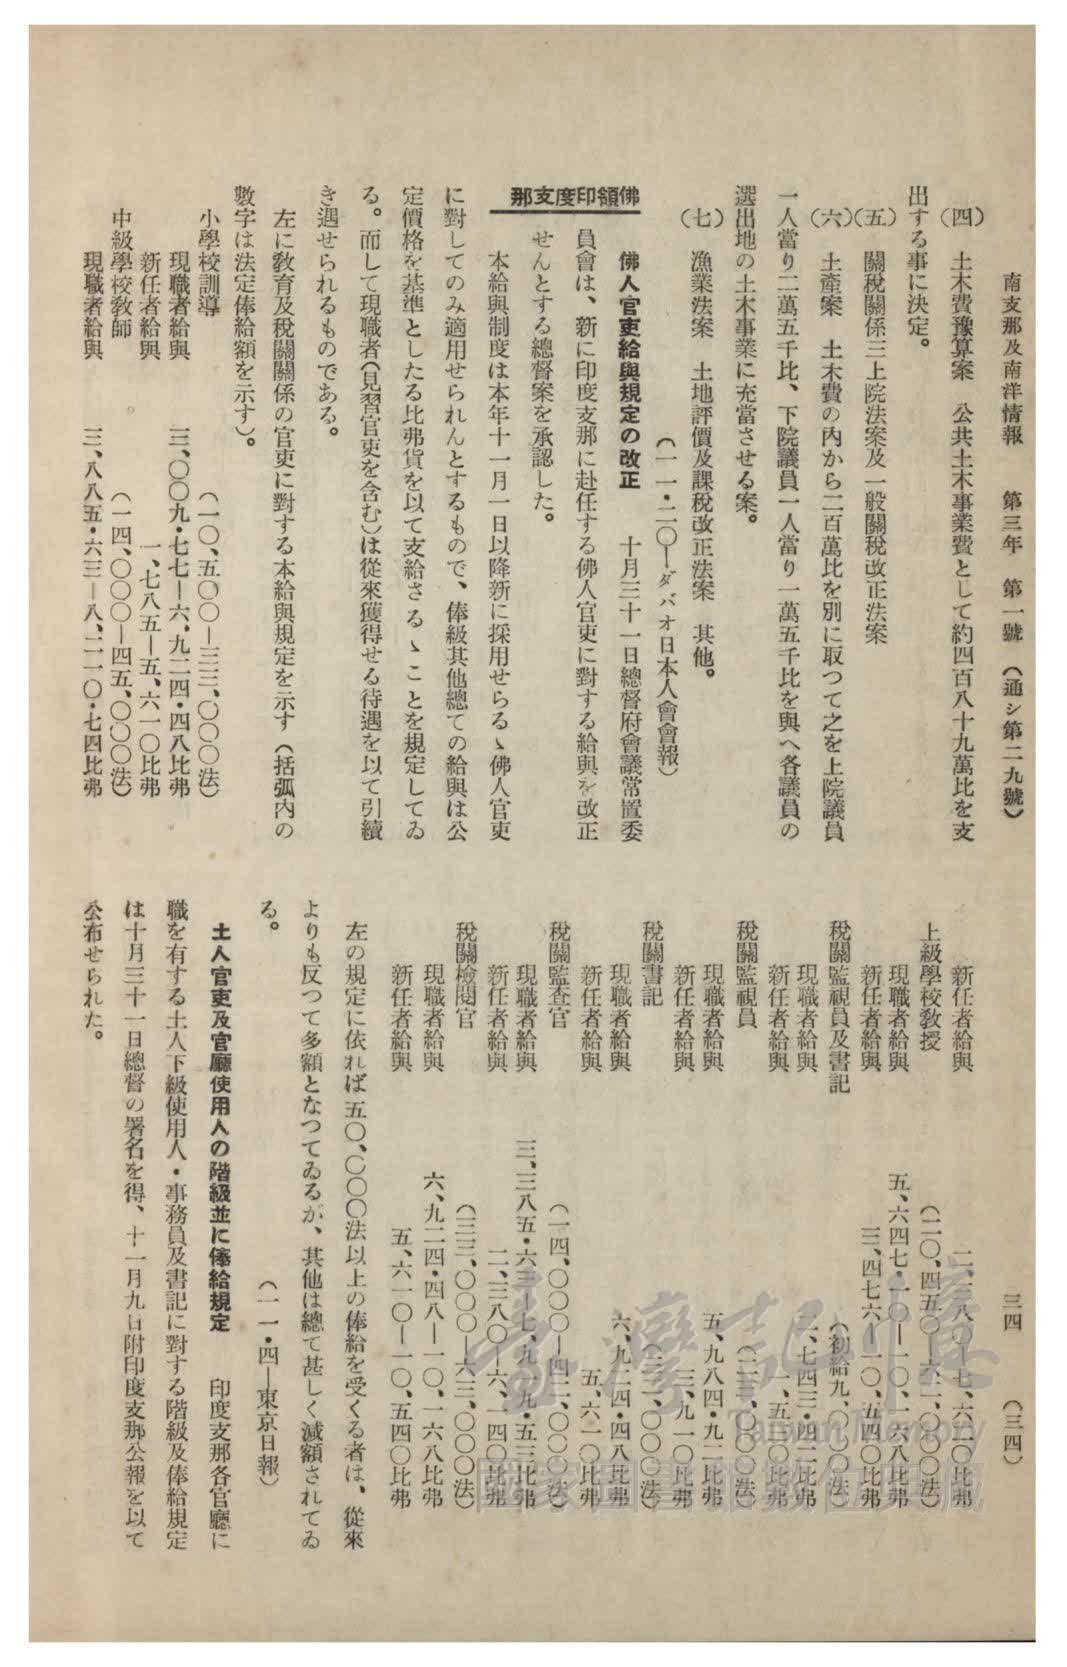 南支那及南洋情報　第三年　第一號　（通シ第二九號）
三四　（三四）
（四）　土木費豫算案　公共土木事業費として約四百八十九萬比を支
出する事に決定。
（五）　關稅關係三上院法案及一般關稅改正法案
（六）　土產案　土木費の內から二百萬比を別に取つて之を上院議員
一人當り二萬五千比、下院議員一人當り一萬五千比を與へ各議員の
選出地の土木事業に充當させる案。
（七）　漁業法案　土地評價及課稅改正法案　其他。
（一一・二〇―ダバオ日本人會會報）
佛領印度支那
佛人官吏給與規定の改正　十月三十一日總督府會議常置委
員會は、新に印度支那に赴任する佛人官吏に對する給與を改正
せんとする總督案を承認した。
本給與制度は本年十一月一日以降新に採用せらるゝ佛人官吏
に對してのみ適用せられんとするもので、俸級其他總ての給與は公
定價格を基準としたる比弗貨を以て支給さるゝことを規定してゐ
る。而して現職者（見習官吏を含む）は從來獲得せる待遇を以て引續
き遇せられるものである。
左に敎育及稅關關係の官吏に對する本給與規定を示す（括弧內の
數字は法定俸給額を示す）。
小學校訓導　（一〇、五〇〇―三三、〇〇〇法）
現職者給與　三、〇〇九・七七―六、九二四・四八比弗
新任者給與　一、七八五―五、六一〇比弗
中級學校敎師　（一四、〇〇〇―四五、〇〇〇法）
現職者給與　三、八八五・六三―八、二一〇・七四比弗
新任者給與　二、三八〇―七、六二〇比弗
上級學校敎授　（二〇、四五〇―六二、〇〇〇法）
現職者給與　五、六四七・一〇―一〇、一六八比弗
新任者給與　三、四七六―一〇、五四〇比弗
稅關監視員及書記　（初給九、〇〇〇法）
現職者給與　二、七四三・四二比弗
新任者給與　一、五三〇比弗
稅關監視員　（二三、〇〇〇法）
現職者給與　五、九八四・九二比弗
新任者給與　三、九一〇比弗
稅關書記　（三三、〇〇〇法）
現職者給與　六、九二四・四八比弗
新任者給與　五、六一〇比弗
稅關監査官　（一四、〇〇〇―四二、〇〇〇法）
現職者給與　三、三八五・六三―七、九一九・五三比弗
新任者給與　二、三八〇―六、一四〇比弗
稅關檢閱官　（三三、〇〇〇―六三、〇〇〇法）
現職者給與　六、九二四・四八―一〇、一六八比弗
新任者給與　五、六一〇―一〇、五四〇比弗
左の規定に依れば五〇、〇〇〇法以上の俸給を受くる者は、從來
よりも反つて多額となつてゐるが、其他は總て甚しく減額されてゐ
る。
（一一・四―東京日報）
土人官吏及官廳使用人の階級並に俸給規定　印度支那各官廳に
職を有する土人下級使用人・事務員及書記に對する階級及俸給規定
は十月三十一日總督の署名を得、十一月九日附印度支那公報を以て
公布せられた。
臺灣記憶
Taiwan Memory
國家圖書館數位典藏